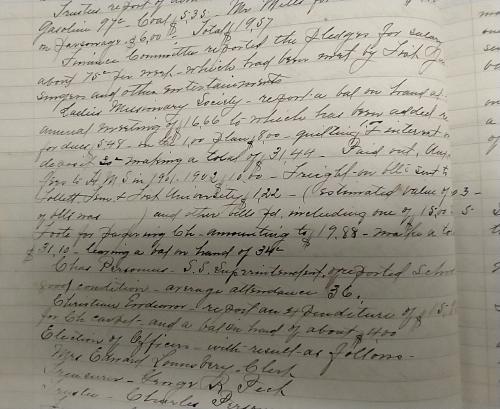 Trustees report of
Gasoline 97c - Coal $5.35 - Mrs Mills for
on Parsonage $6.00 - Total $19.57
Finance Committee reported the pledges for salary
about 75c per week - which had been met by
singers and other entertainments
Ladies Missionary Society - report a bal on hand at
annual meeting of $16.66 to which has been added
for dues, 5.48 - on the 1.00 plan $8.00 - quilting & interest on
deposit making a total of $31.44 - Paid out,
to H.M.S in 1901-1902 $10.00 - Freight on bbls sent to
and University $1.22 - (estimated value of
of bbls was ) and other bills pd, including one of $15.00
for papering Ch - amounting to $19.88 - making a
$31.10 - leaving a bal on hand of 34c
Chas Personius - S.S. Superintendent, reported School
good condition - average attendance 36.
Christian Endeavor - report an expenditure of $15
for Ch carpet - and a bal on hand of about $4.00
Election of Officers - with result as follows -
Mrs Edward Lounsbery - Clerk
Treasurer - George R. Peck
Trustee - Charles